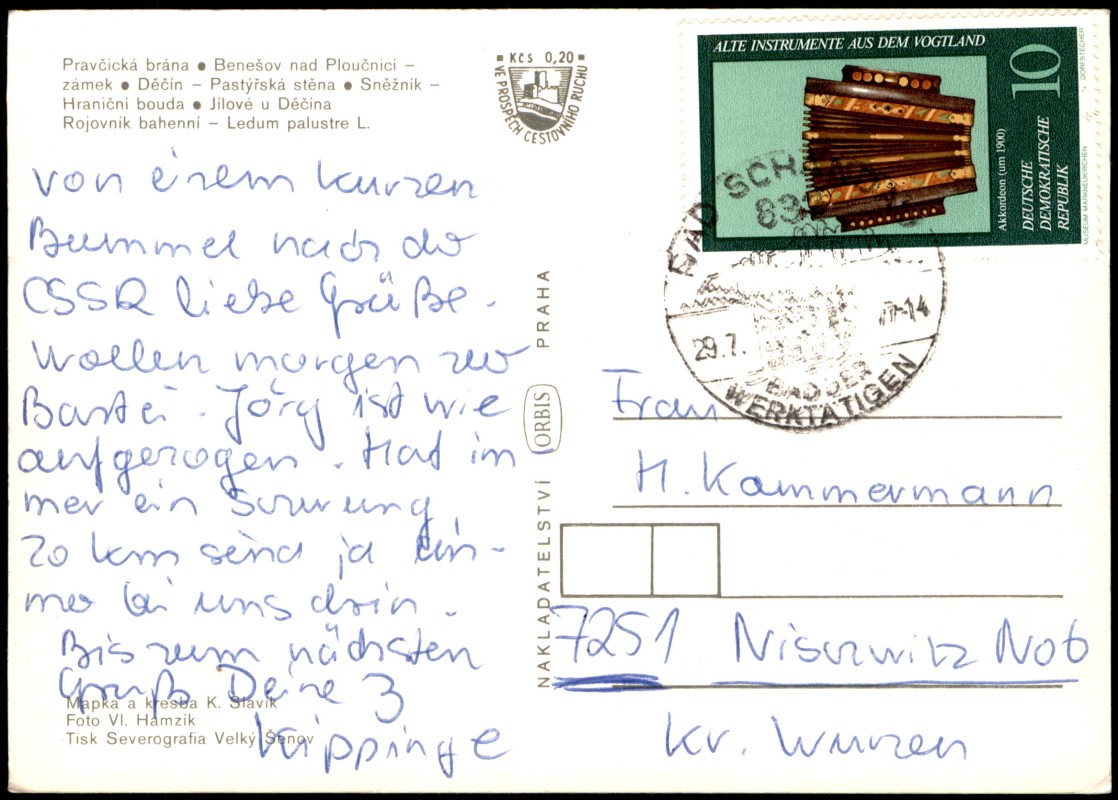 Pravčická brána ● Benešov nad Ploučnicí –
zámek ● Děčín – Pastýřská stěna ● Sněžník –
Hraniční bouda ● Jílové u Děčína
Rojovník bahenní – Ledum palustre L.
Kčs 0,20
VE PROSPĚCH CESTOVNÍHO RUCHU
ALTE INSTRUMENTE AUS DEM VOGTLAND
10
Akkordeon (um 1900)
DEUTSCHE
DEMOKRATISCHE
REPUBLIK
MUSEUM MARKNEUKIRCHEN
DORFSTECHER
BAD
83
29.7.
-14
BAD DER
WERKTÄTIGEN
von einem kurzen
Bummel nach der
CSSR liebe Grüße.
Wollen morgen zur
Bastei. Jörg ist wie
aufgezogen. Hat im
mer ein
20 km sind ja
mer bei uns drin.
Bis zum nächsten
Gruß Deine 3
Krippinge
Mapka a kresba K. Slavík
Foto Vl. Hamzík
Tisk Severografia Velký Šenov
NAKLADATELSTVÍ ORBIS PRAHA
Frau
H. Kammermann
7251 Nischwitz Nob
Kr. Wurzen